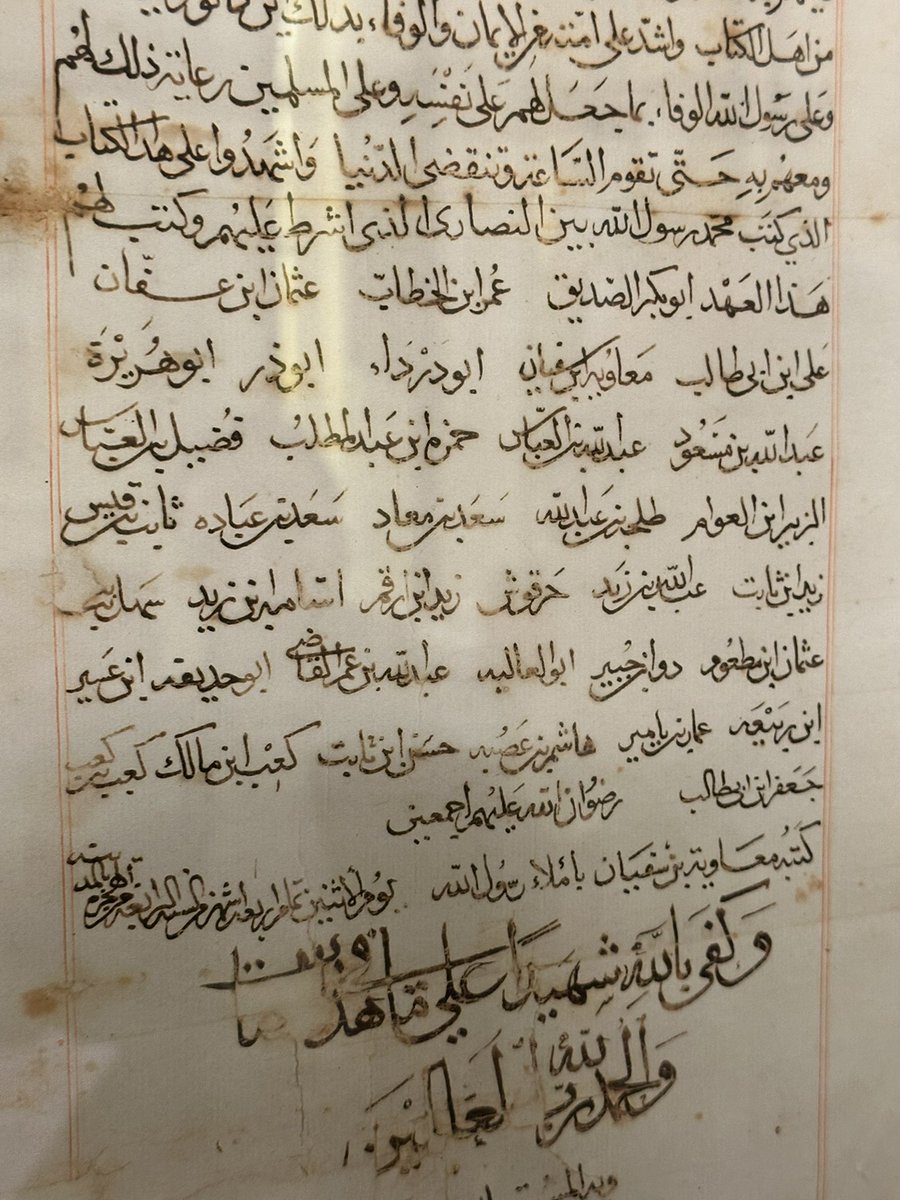 من اهل الكتاب واشد على امته غر الإيمان والوفاء بذلك
وعلى رسول الله الوفاء بما جعل لهم على نفسه وعلى المسلمين رعاية ذلك لهم
ومعهم به حتى تقوم الساعة وتنقضي الدنيا واشهدوا على هذا الكتاب
الذي كتب محمد رسول الله بين النصارى الذي اشرط عليهم وكتب لهم
هذا العهد ابو بكر الصديق عمر ابن الخطاب عثمان ابن عفان
على ابن ابى طالب معاوية ابن سفيان ابو درداء ابو ذر ابو هريرة
عبد الله بن مسعود عبد الله بن العباس حمزه ابن عبد المطلب فضيل بن العباس
الزبير ابن العوام طلحة بن عبد الله سعد بن معاد سعد بن عباده ثابت بن قيس
زيد ابن ثابت عبد الله بن زيد حرقوش زيد ابن ارقم اسامة ابن زيد سهل بن
عثمان ابن مطعوم ابن جبير ابو العاليه عبد الله بن عمر القاضي ابو حديقه ابن عبير
ابن ربيعه عمار بن يامير هاشم بن عصيه حسن ابن ثابت كعب ابن مالك كعب بن كعب
جعفر ابن ابى طالب رضوان الله عليهم اجمعين
كتبه معاوية بن سفيان باملاء رسول الله يوم الاثنين تمام اربعة اشهر من السنة الرابعة من الهجرة بالمدينة
وكفى بالله شهيدا على ما هذا
والحمد لله رب العالمين